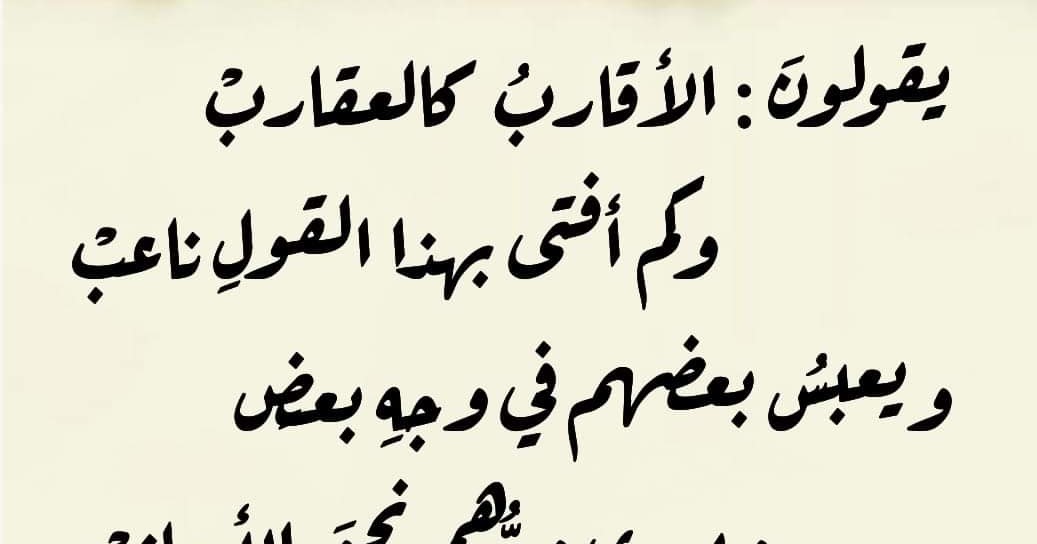 يقولونَ : الأقاربُ كالعقاربْ
وكم أفتى بهذا القولِ ناعبْ
ويعبسُ بعضهم في وجهِ بعض